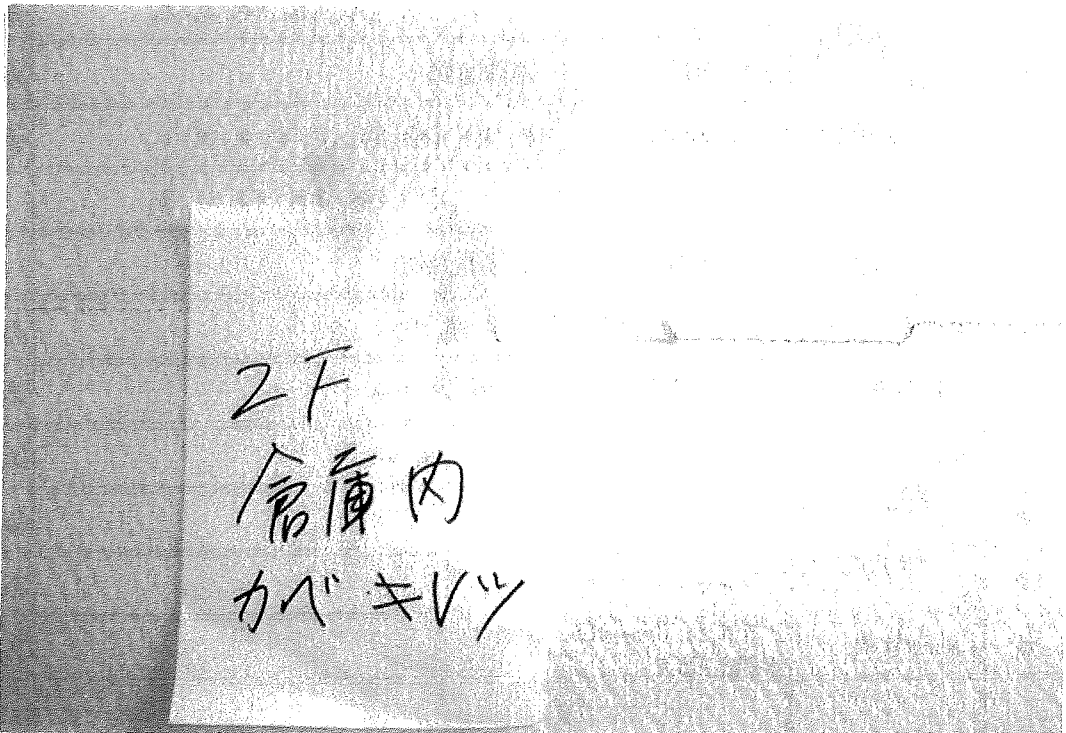 2F
倉庫内
カベ キレツ